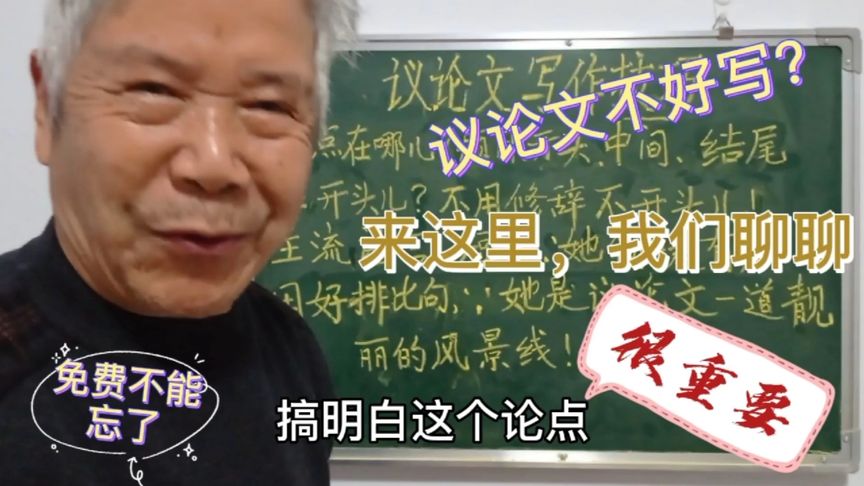 议论文写作技
议论文不好写？
点在哪儿 头、中间、结尾
开头儿？不用修辞不开头儿！
来这里，我们聊聊
主流 她
用好排比句，∵她是议论文一道靓
丽的风景线！
很重要
免费不能
忘了
搞明白这个论点